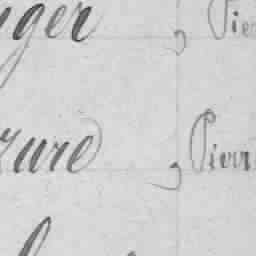 ger, Pie
zure, Pierr